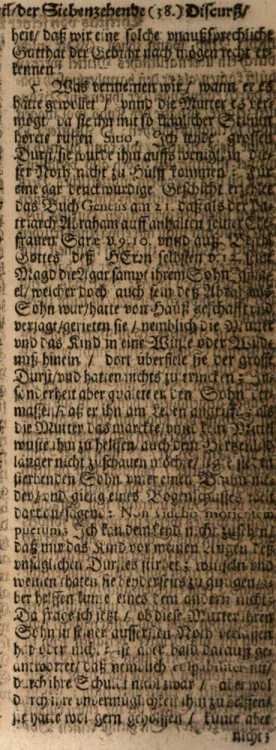 der Siebenzehende (38.) Discurß/
heit/ daß wir eine solche vnaußsprechliche
Gutthat der Gebühr nach mögen recht er-
kennen
5. Was vermeinen wir/ wann er es
hätte gewollet/ vnnd die Mutter es ver-
mögt da sie ihn mit so
hörete ruffen Sitio, Ich leyde grossen
Durst/ sie wurde ihm auffs wenigst in die-
ser Noth nicht zu Hülff kommen
eine gar denckwürdige Geschicht erzehlet
das Buch Genesis am 21. daß als der Pa-
triarch Abraham auff anhalten seiner Ehe-
frauen Saræ v. 9. 10. vnnd auß
Gottes deß HErrn selbsten v. 12. seine
Magd die Agar sampt ihrem Sohn Ismael
/ welcher doch auch sein deß Abrahams
Sohn war/ hatte von Hauß geschafft vnd
verjagt/ gerieten sie/ nemblich die Mutter
vnd das Kind in eine Wüste oder Wild-
nuß hinein/ dort überfiele sie der grosse
Durst/ vnd hatten nichts zu trincken
sonderheit aber quälete er den Sohn der-
massen/ daß er ihn am Leben angriffe: als
die Mutter das märckte/ vnnd kein Mittel
wuste ihm zu helffen/ auch dem
länger nicht zuschauen möchte/ legte
sterbenden Sohn vnter einen Baum ni-
der/ vnd gieng eines Bogenschusses weit
darvon/ sagend: Non videbo morientem
puerum: Ich kan dem Kend nicht zusehen
daß mir das Kind vor meinen Augen deß
vnsäglichen Durstes stirbet
weinen thaten sie beyderseits zu gnügen/ a-
ber helffen kunte eines dem andern nicht.
Da frage ich jetzt/ ob diese Mutter ihren
Sohn in seiner äussersten Noth verlassen
hat oder nicht ist aber bald darauß ge-
antwortet/ daß nemblich
durch ihre Schuld nicht zwar/ aber wol
durch ihre vnvermüglichkeit ihm zu helffen/
sie hätte wol gern geholffen/ kunte aber
nicht: